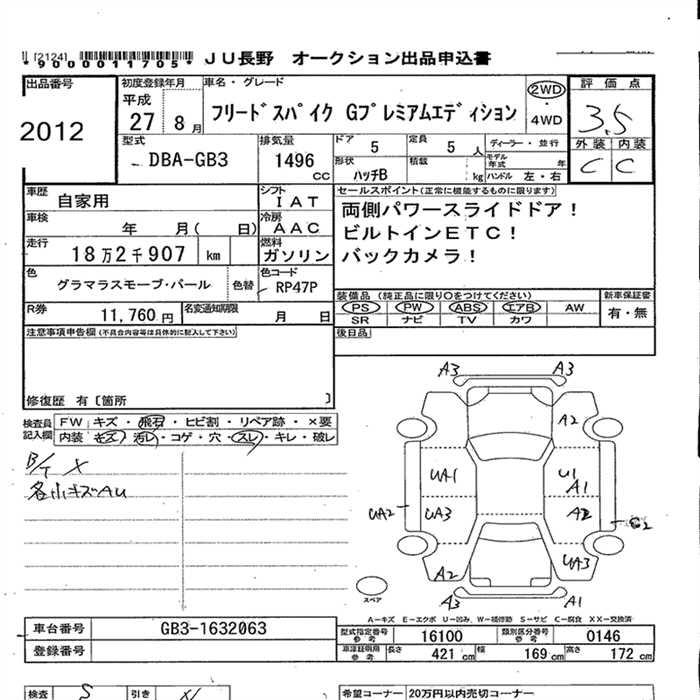 [2124]
*9000011705*
JU長野 オークション出品申込書
出品番号
2012
初度登録年月
平成
27 8月
車名・グレード
フリードスパイク Gプレミアムエディション
2WD
・
4WD
評価点
3.5
外装 内装
C C
型式
DBA-GB3
排気量
1496
CC
ドア
5
定員
5 人
形状
ハッチB
積載
kg
ディーラー・並行
モデル年式 年
ハンドル 左・右
車歴
自家用
シフト
IAT
車検
年 月( 日)
冷房
AAC
走行
18万2千907 km
燃料
ガソリン
色
グラマラスモーブ・パール
色替
色コード
RP47P
R券
11,760円
名変通知期限
月 日
セールスポイント(正常に機能するものに限ります)
両側パワースライドドア!
ビルトインETC!
バックカメラ!
装備品(純正品に限り○をつけてください)
PS PW ABS エアB AW
SR ナビ TV カワ
新車保証書
有・無
後日品
注意事項申告欄(不具合内容等は具体的に記入して下さい)
修復歴 有[箇所 ]
検査員
記入欄
FW キズ・飛石・ヒビ割・リペア跡・×要
内装 キズ・汚レ・コゲ・穴・スレ・キレ・破レ
B/T X
各小キズAU
A3 A3
A2
UA1 U1
A1
UA2 UA3 A2 C2
UA3
A2
A3 A1
スペア
A-キズ E-エクボ U-凹み W-補修跡 S-サビ C-腐食 XX-交換済
車台番号
GB3-1632063
登録番号
型式指定番号
参考
16100
類別区分番号
参考
0146
車庫証明用
参考
長さ 421cm 幅 169cm 高さ 172cm
検査 S 引き
希望コーナー 20万円以内売切コーナー